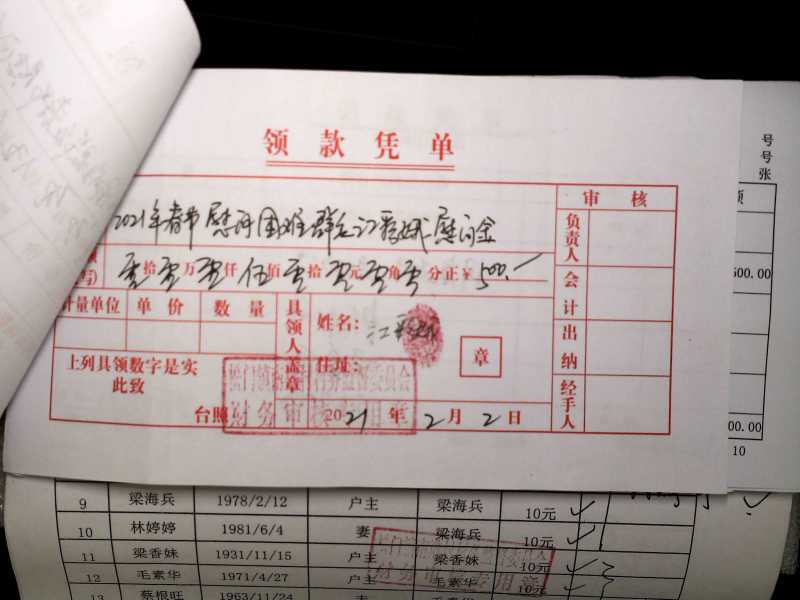 领款凭单
2021年春节慰问困难群众江彩娥慰问金
零拾零万零仟伍佰零拾零元零角零分正¥500.-
计量单位 单价 数量
具领人盖章
姓名：江彩娥
住址：
章
上列具领数字是实
此致
台照
2021年2月2日
财务审核专用章
审核
负责人
会计
出纳
经手人
号
号
张
500.00
00.00
10
9 梁海兵 1978/2/12 户主 梁海兵 10元
10 林婷婷 1981/6/4 妻 梁海兵 10元
11 梁香妹 1931/11/15 户主 梁香妹 10元
12 毛素华 1971/4/27 户主 毛素华 10元
13 蔡根旺 1963/11/24